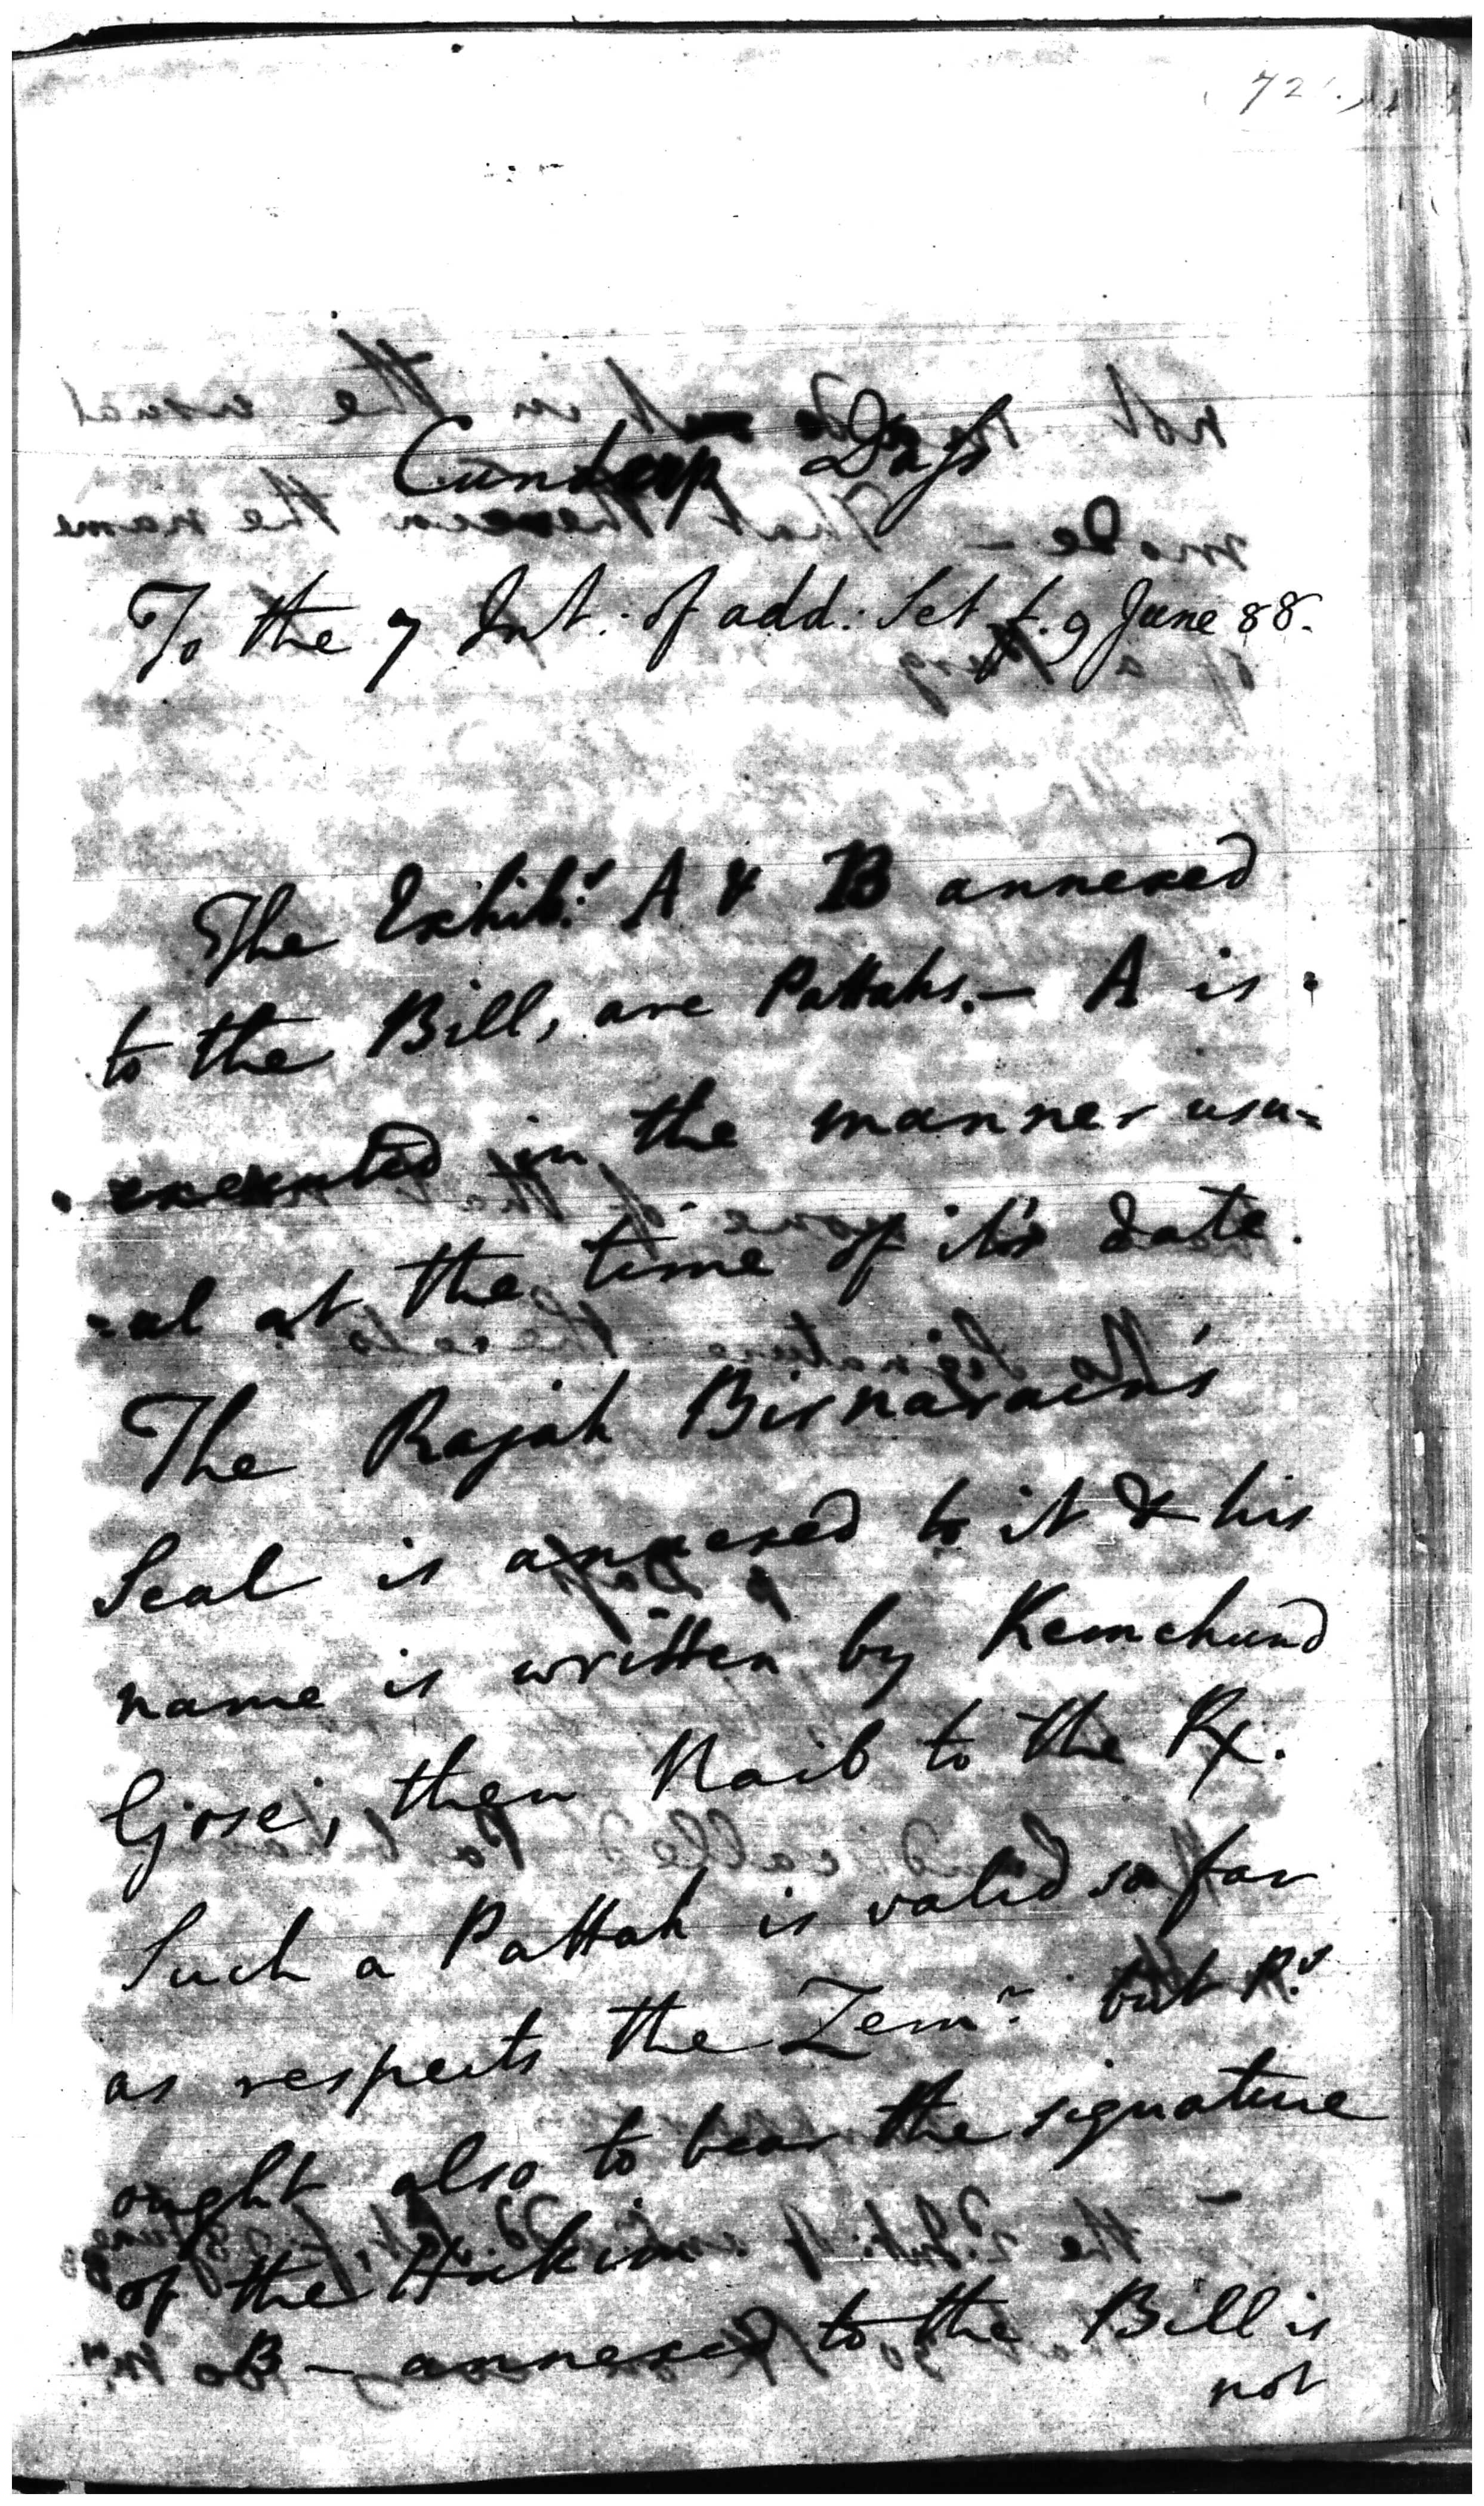 72
Cundeep Dass
To the 7 Int. of add: Set f. 9 June 88.
The Exhib:s A & B annexed
to the Bill, are Pattahs. — A is
executed in the manner usu=
=al at the time of it's date.
The Rajah Bisnarain's
Seal is annexed to it & his
name is written by Kemchund
Gose, then Naib to the
Such a Pattah is valid so far
as respects the Zemr. but
ought also to bear the signature
of the Hakim
B — annexed to the Bill is
not